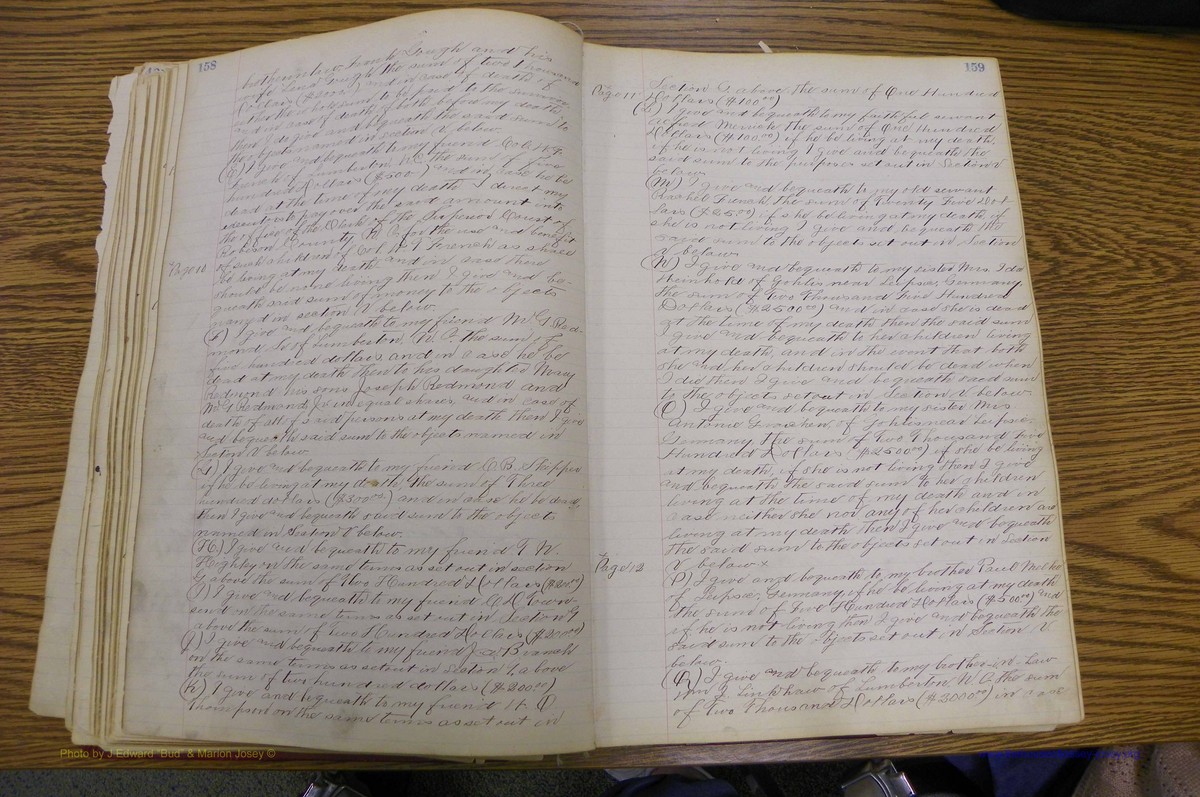 158
brother in law Frank Gough and his
wife Lina Gough the sum of two thousand
Dollars ($2000) and in case of death of
either the whole sum to be paid to the survivor
and in case of death of both before my death
then I give and bequeath the said sum to
the objects named in section V below.
(E) I give and bequeath to my friend Col. W. F.
French of Lumberton N.C. the sum of five
hundred dollars ($500) and in case he be
dead at the time of my death I direct my
executors to pay over the said amount into
the office of the Clerk of the Superior Court of
Robeson County N.C. for the use and benefit
of such children of Col. W. F. French as shall
Page 10
be living at my death and in case there
should be none living then I give and be-
queath said sum of money to the objects
named in section V below.
(F) I give and bequeath to my friend M. G. Red-
mond Sr of Lumberton, N.C. the sum of
five hundred dollars, and in case he be
dead at my death then to his daughter Mary
Redmond his sons Joseph Redmond and
M. G. Redmond Jr in equal shares and in case of
death of all of said persons at my death then I give
and bequeath said sum to the objects named in
Section V below.
(G) I give and bequeath to my friend C. B. Skipper
if he be living at my death, the sum of Three
hundred dollars ($300.00) and in case he be dead,
then I give and bequeath said sum to the objects
named in Section V below.
(H) I give and bequeath to my friend T. W.
on the same terms as set out in section
G above the sum of Two Hundred Dollars ($200.00)
I) I give and bequeath to my friend Town-
send on the same terms as set out in Section G
above the sum of Two Hundred Dollars ($200.00)
(J) I give and bequeath to my friend Jas. B
on the same terms as set out in Section I, above
the sum of two hundred dollars ($200.00)
(K) I give and bequeath to my friend H. D.
Thompson on the same terms as set out in
159
Page 11
Section G above, the sum of One Hundred
Dollars ($100.00)
(L) I give and bequeath to my faithful servant
the sum of One Hundred
Dollars ($100.00) if he be living at my death,
if he is not living I give and bequeath the
said sum to the purposes set out in Section V
below.
(M) I give and bequeath to my old servant
Rachel French the sum of Twenty Five Dol-
lars ($25.00) if she be living at my death, if
she is not living I give and bequeath the
said sum to the objects set out in Section
V below.
(N) I give and bequeath to my sister Mrs. Ida
Rheinhold of Gohlis near Leipsic, Germany
the sum of Two Thousand Five Hundred
Dollars ($2500.00) and in case she is dead
at the time of my death then the said sum
I give and bequeath to her children living
at my death, and in the event that both
she and her children should be dead when
I die then I give and bequeath said sum
to the objects set out in Section V below
(O) I give and bequeath to my sister Mrs.
Antonie of Gohlis near Leipsic
Germany, the sum of Two Thousand Five
Hundred Dollars ($2500.00) if she be living
at my death, if she is not living then I give
and bequeath the said sum to her children
living at the time of my death and in
case neither she nor any of her children are
living at my death then I give and bequeath
the said sum to the objects set out in Section
V below x
Page 12
P) I give and bequeath to my brother Paul
of Leipsic, Germany if he be living at my death
the sum of Five Hundred Dollars ($500.00) and
if he is not living then I give and bequeath the
said sum to the objects set out in Section V
below.
(Q) I give and bequeath to my brother-in-law
Wm. J. Linkhaw of Lumberton N.C. the sum
of Two Thousand Dollars ($2000.00) in case
Photo by J Edward "Bud" & Marion Josey ©